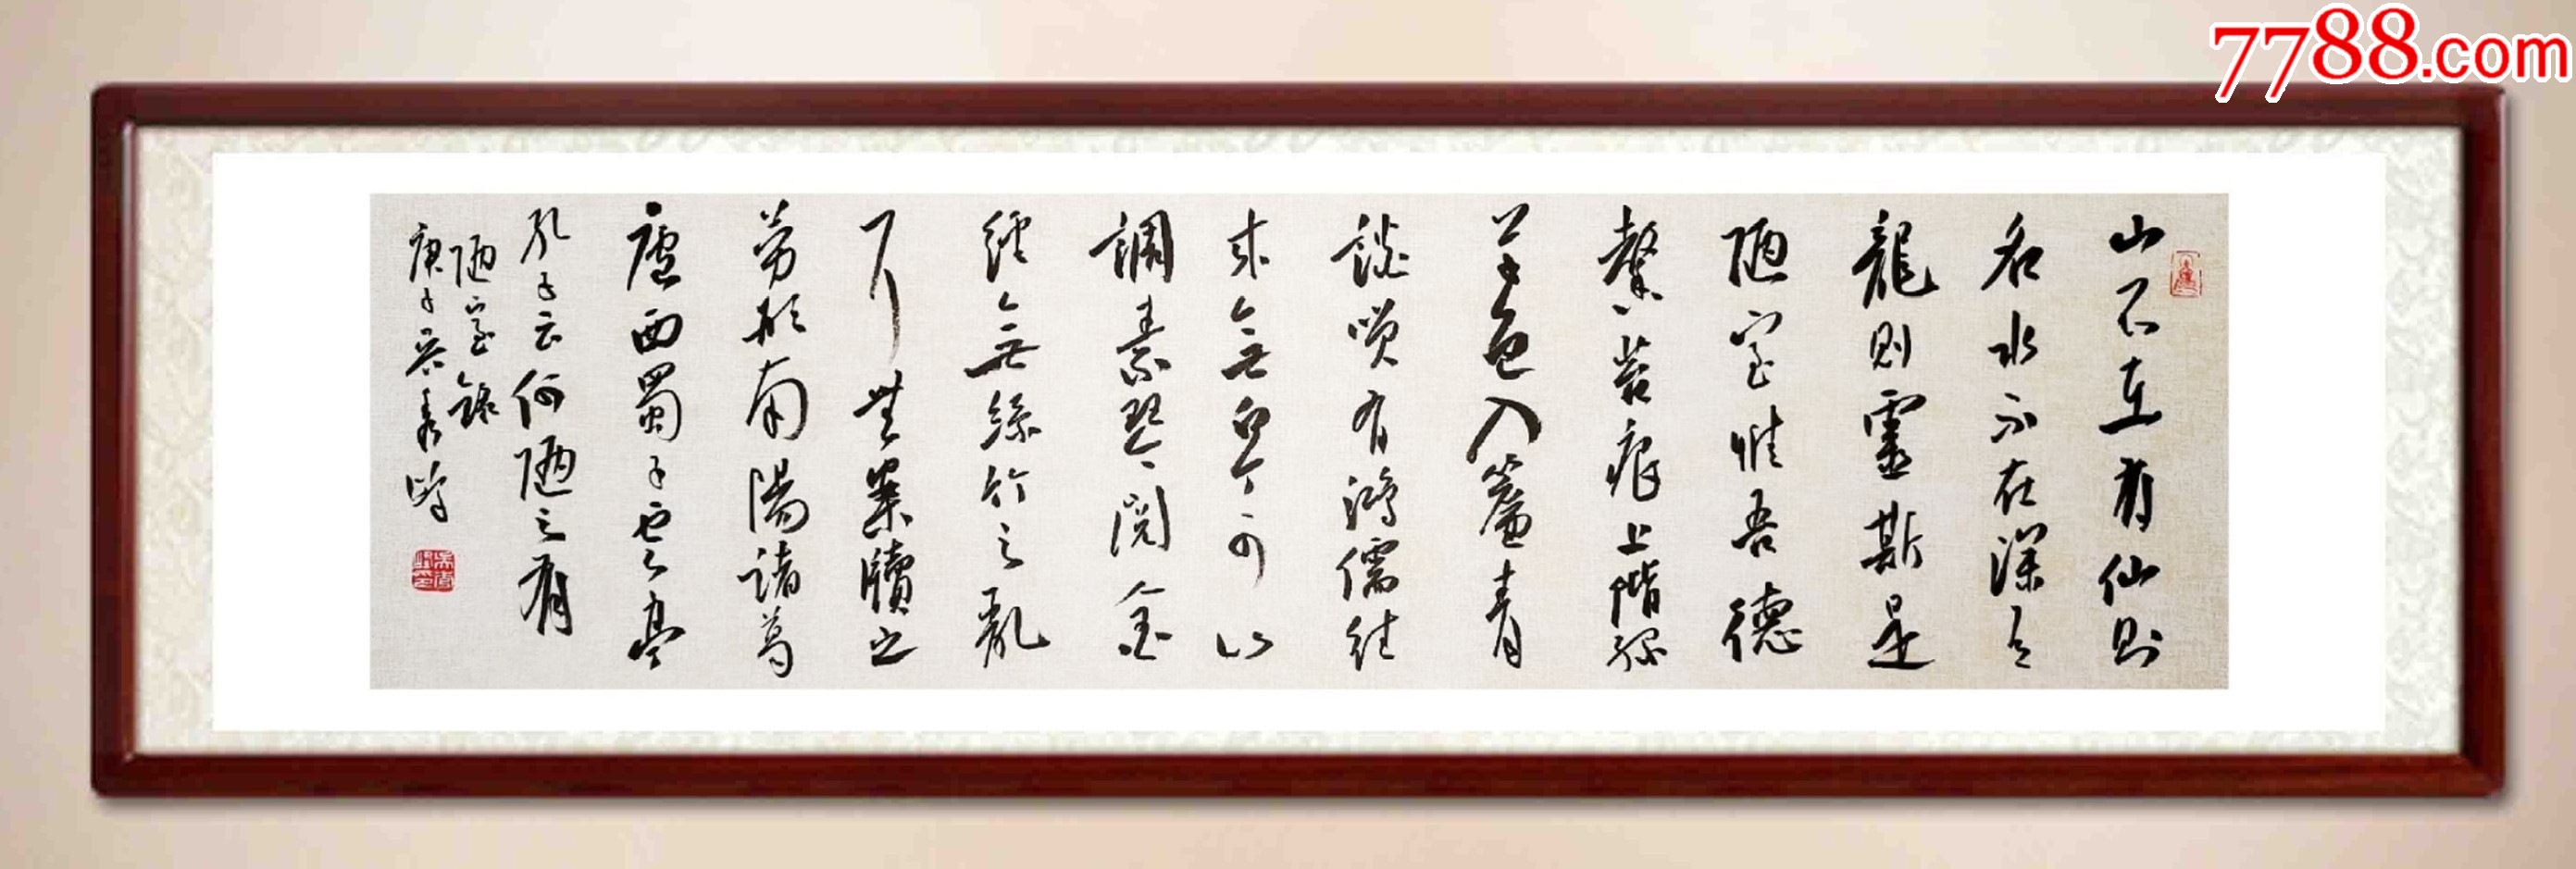 山不在有仙则
名水不在深
龍則靈斯是
陋室惟吾德
馨苔痕上階綠
草色入簾青
談咲有鴻儒往
來無白丁可以
調素琴閱金
經無絲竹之亂
耳無案牘之
勞形南陽諸葛
廬西蜀子雲亭
孔子云何陋之有
陋室銘
庚子吴
7788.com